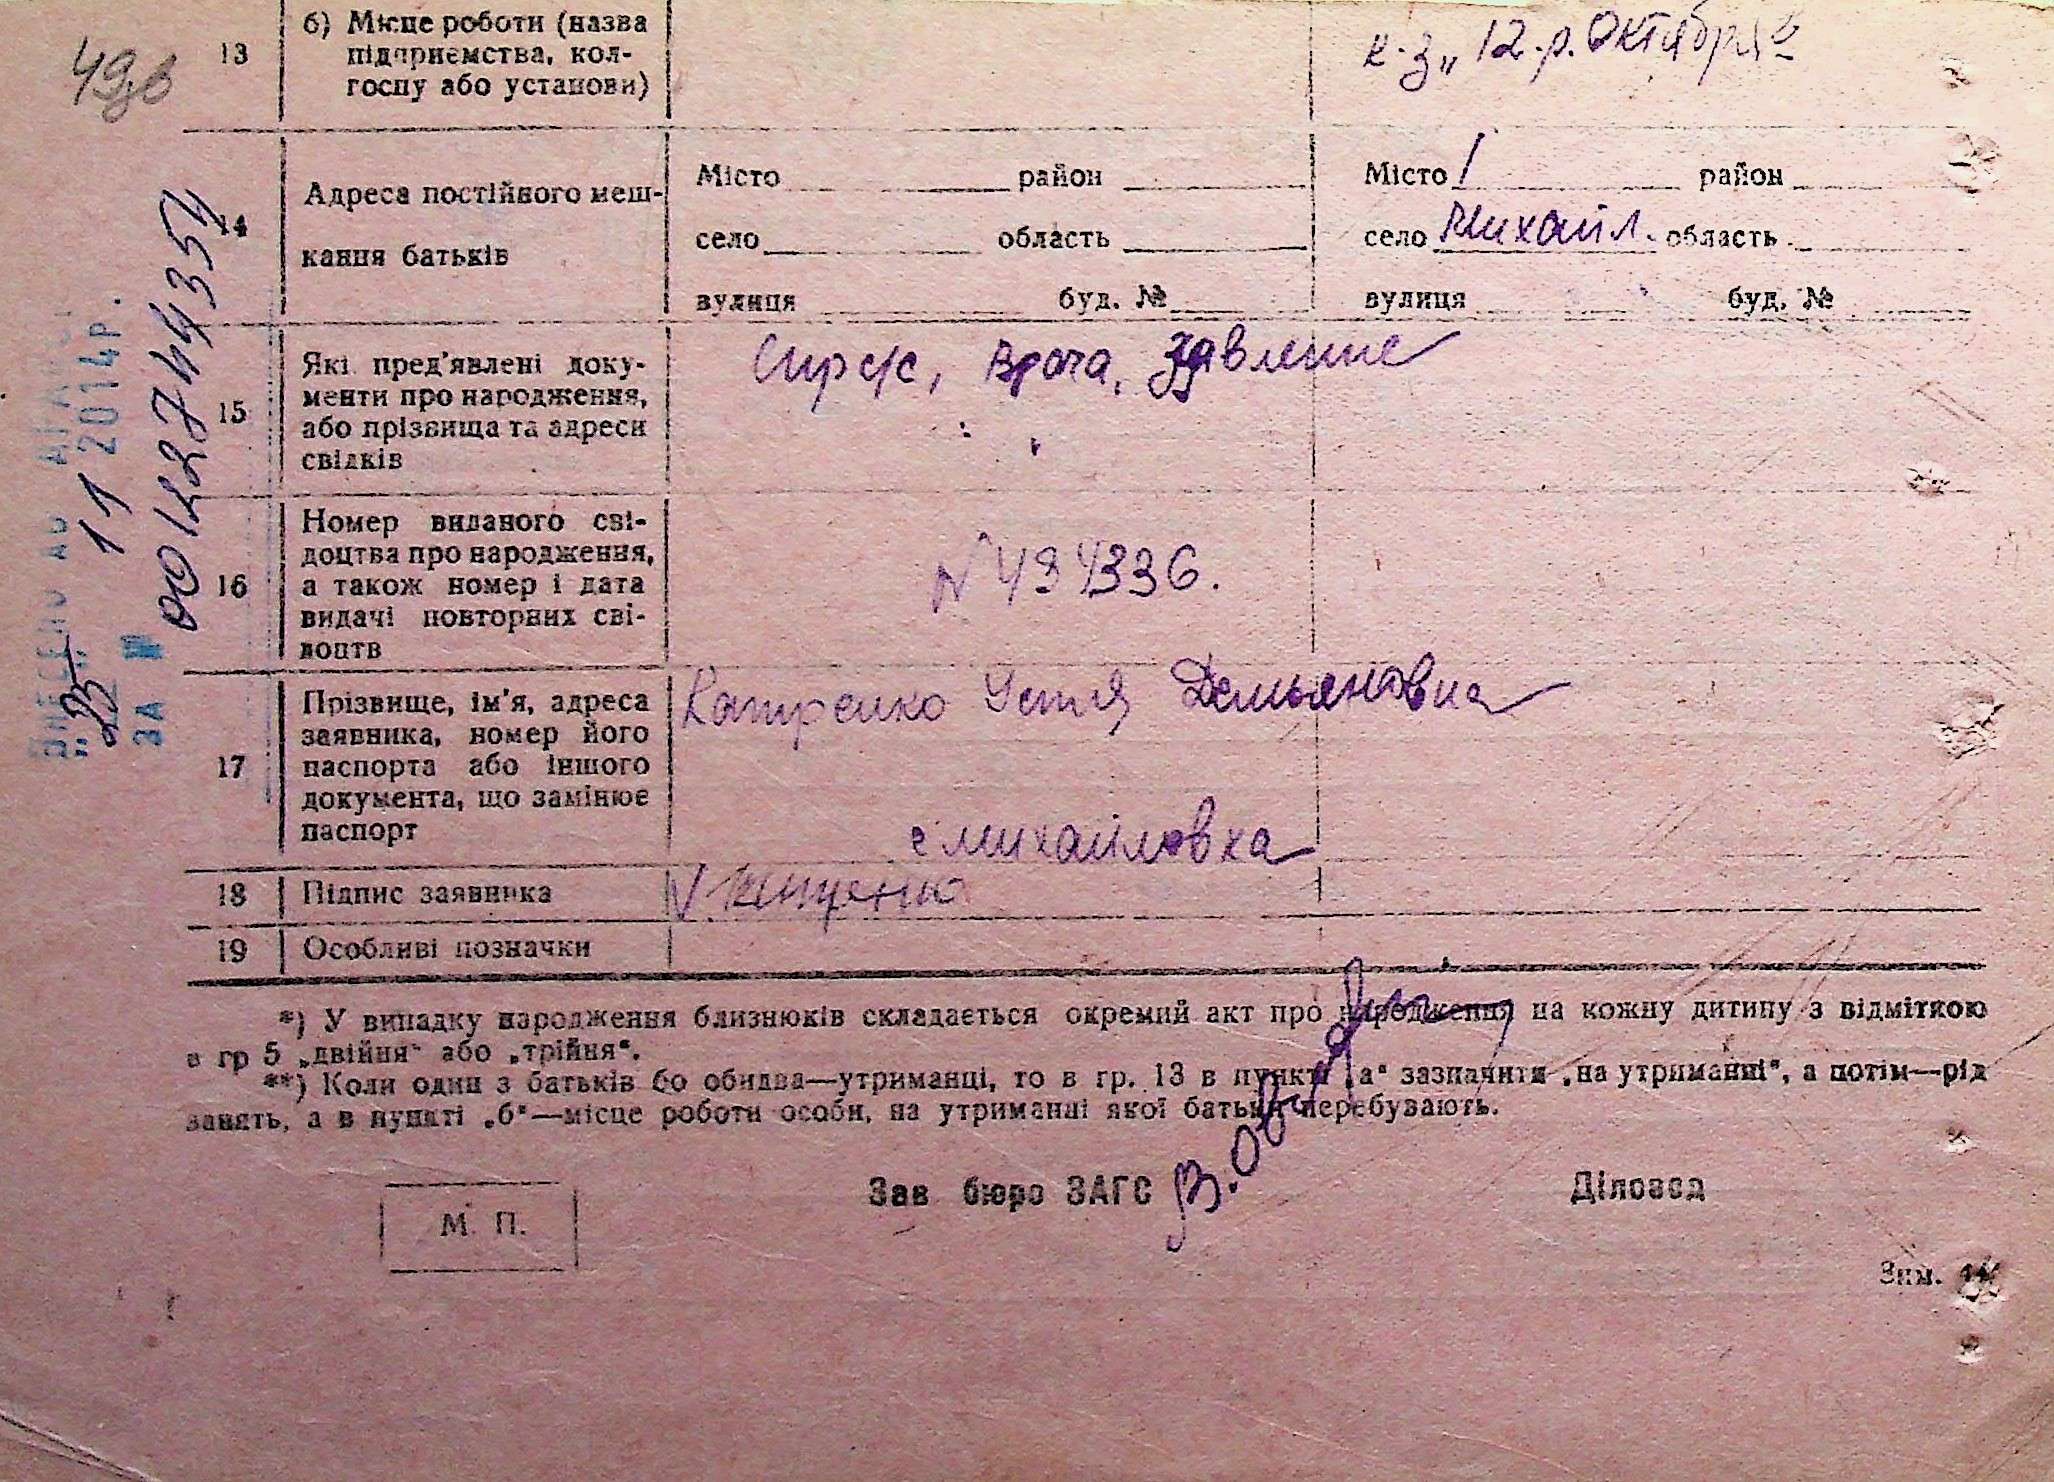 49зв
13
б) Місце роботи (назва
підприємства, кол-
госпу або установи)
к-з „12-р. Октября"
14
Адреса постійного меш-
кання батьків
Місто район
село область
вулиця буд. №
Місто район
село Михайл. область
вулиця буд. №
15
Які пред'явлені доку-
менти про народження,
або прізвища та адреси
свідків
Спр с/с, врача, заявление
16
Номер виданого сві-
доцтва про народження,
а також номер і дата
видачі повторних сві-
доцтв
N 494336.
17
Прізвище, ім'я, адреса
заявника, номер його
паспорта або іншого
документа, що замінює
паспорт
Катренко Устя Демьяновна
с Михайловка
18
Підпис заявника
19
Особливі позначки
*) У випадку народження близнюків складається окремий акт про народження на кожну дитину з відміткою
в гр 5 „двійня" або „трійня".
**) Коли один з батьків бо обидва—утриманці, то в гр. 13 в пункті „а" зазначити „на утриманні", а потім—рід
занять, а в пункті „б"—місце роботи особи, на утриманні якої батьки перебувають.
М. П.
Зав бюро ЗАГС
Діловод
Зам.
ВНЕСЕНО ДО
„25" 11 2014р.
ЗА № 00122744354